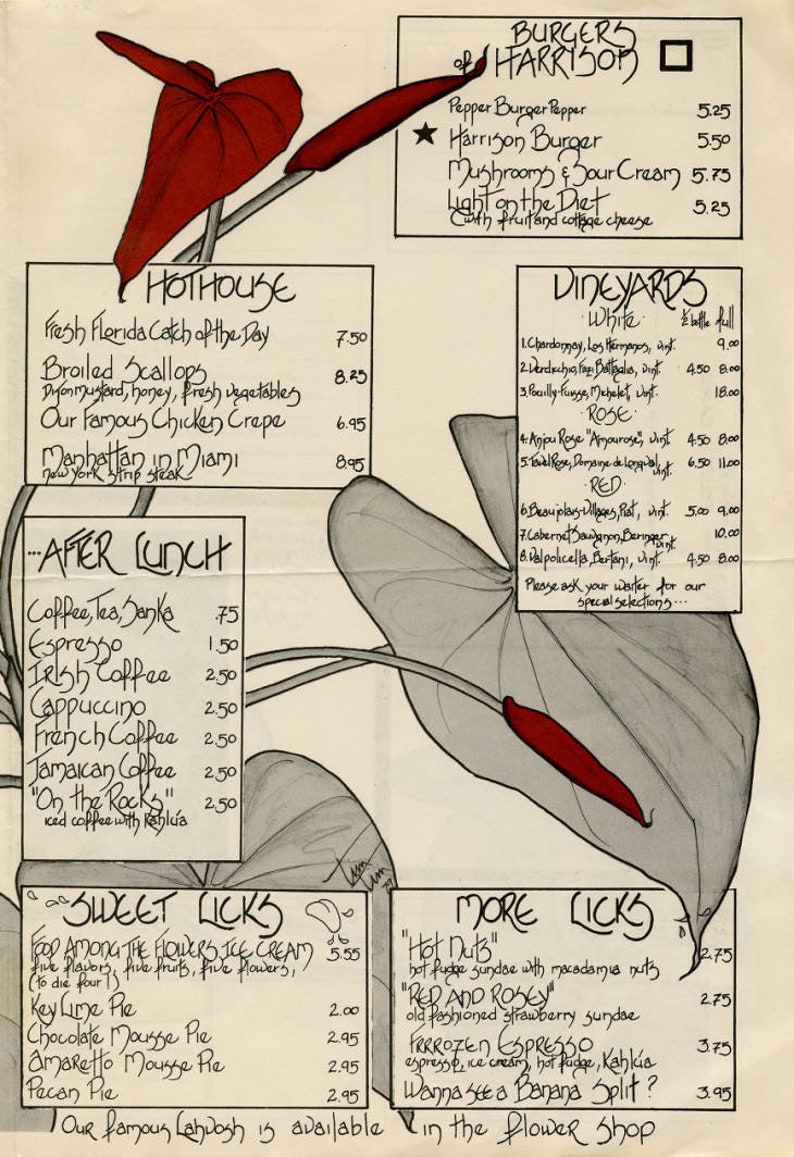 BURGERS
of HARRISON
Pepper Burger Pepper 5.25
★ Harrison Burger 5.50
Mushrooms & Sour Cream 5.75
Light on the Diet 5.25
with fruit and cottage cheese
HOTHOUSE
Fresh Florida Catch of the Day 7.50
Broiled Scallops 8.25
Dijon mustard, honey, fresh vegetables
Our Famous Chicken Crepe 6.95
Manhattan in Miami 8.95
new york strip steak
VINEYARDS
·White· ½ bottle full
1. Chardonnay, Los Hermanos, vint. 9.00
2. Verdicchio, Fazi Battaglia, vint. 4.50 8.00
3. Pouilly-Fuisse, Michelet, vint. 18.00
·ROSE·
4. Anjou Rose "Amourose", vint. 4.50 8.00
5. Tavel Rose, Domaine de Longval, vint. 6.50 11.00
·RED·
6. Beaujolais-Villages, Piat, vint. 5.00 9.00
7. Cabernet Sauvignon, Beringer vint. 10.00
8. Valpolicella, Bertani, vint. 4.50 8.00
Please ask your waiter for our
special selections...
...AFTER LUNCH
Coffee, Tea, Sanka .75
Espresso 1.50
Irish Coffee 2.50
Cappuccino 2.50
French Coffee 2.50
Jamaican Coffee 2.50
"On the Rocks" 2.50
iced coffee with Kahlúa
tim
SWEET LICKS
FOOD AMONG THE FLOWERS ICE CREAM 5.55
five flavors, five fruits, five flowers,
(to die four!)
Key Lime Pie 2.00
Chocolate Mousse Pie 2.95
Amaretto Mousse Pie 2.95
Pecan Pie 2.95
MORE LICKS
"Hot Nuts" 2.75
hot fudge sundae with macadamia nuts
"RED AND ROSEY" 2.75
old fashioned strawberry sundae
FRRROZEN ESPRESSO 3.75
espresso, ice cream, hot fudge, Kahlúa
Wanna see a Banana Split? 3.95
Our famous Lahvosh is available in the flower shop